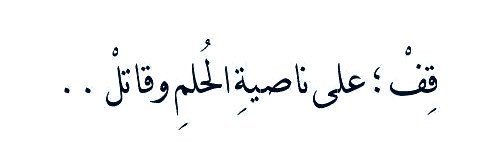 قِفْ؛ على ناصيةِ الحُلمِ وقاتلْ . .